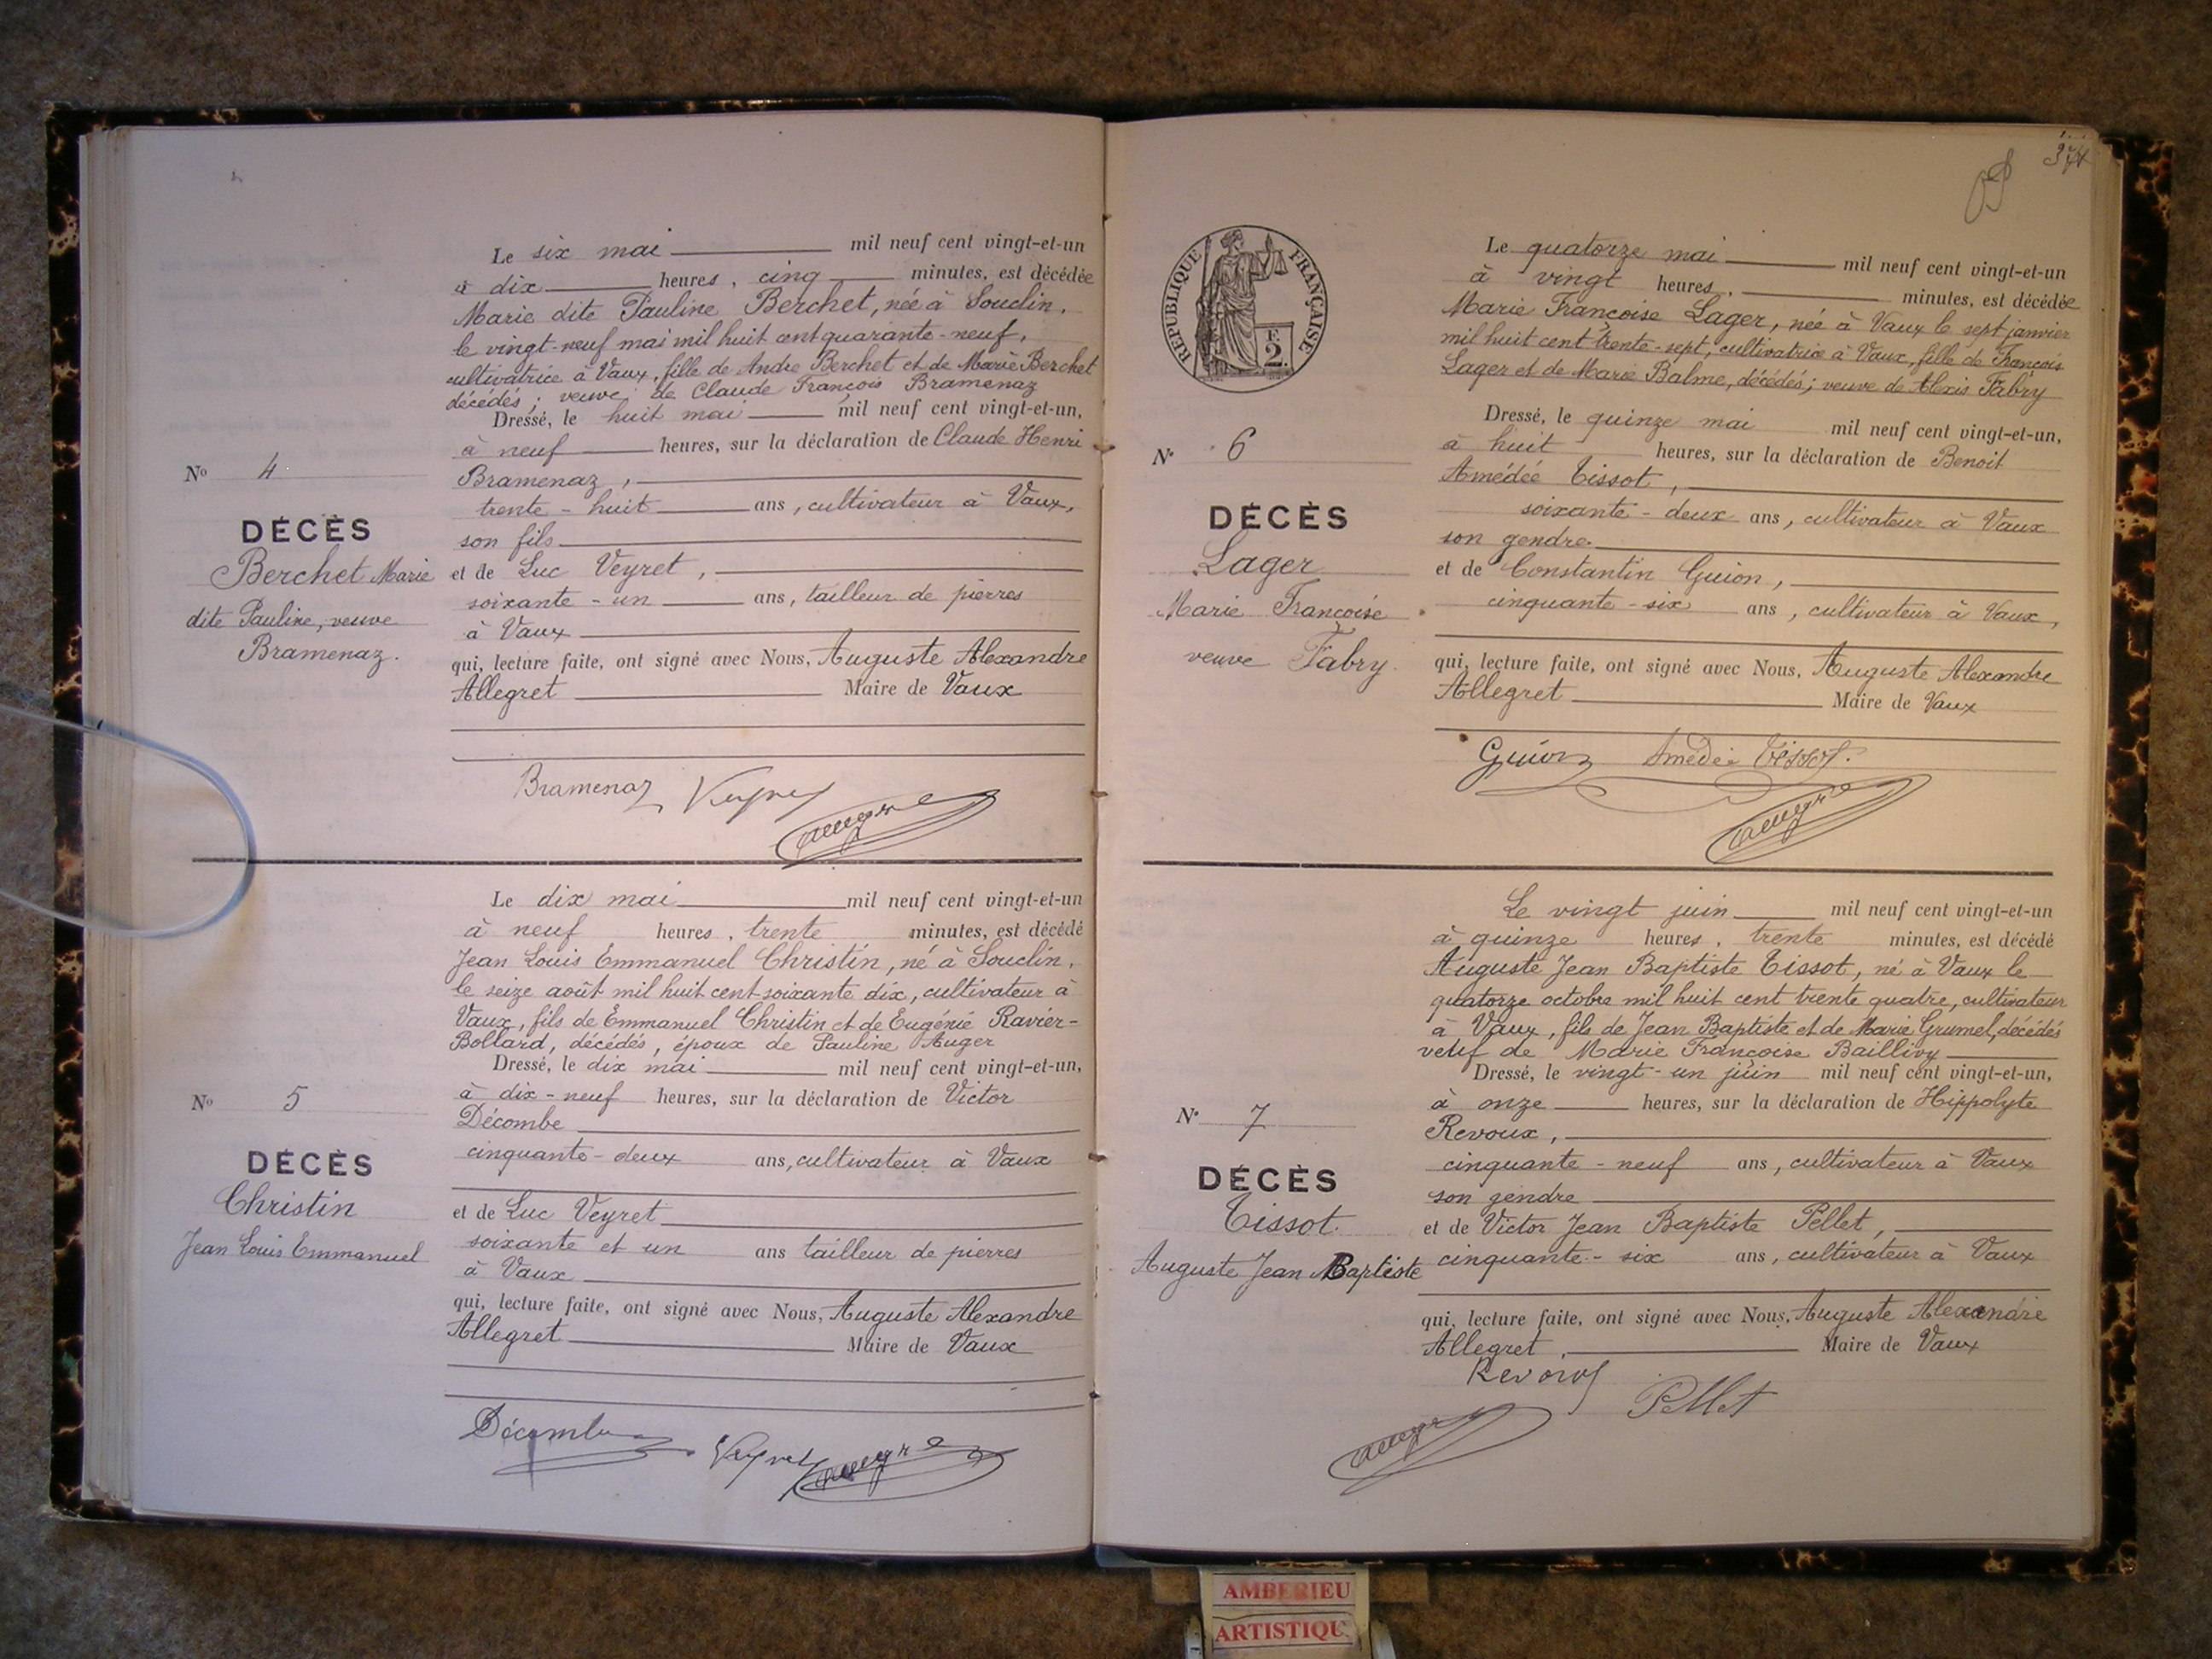 Le six mai mil neuf cent vingt-et-un
à dix heures, cinq minutes, est décédée
Marie dite Pauline Berchet, née à Souclin,
le vingt-neuf mai mil huit cent quarante-neuf,
cultivatrice à Vaux, fille de Andre Berchet et de Marie Berchet
décédés; veuve de Claude François Bramenaz
Dressé, le huit mai mil neuf cent vingt-et-un,
à neuf heures, sur la déclaration de Claude Henri
Bramenaz,
trente-huit ans, cultivateur à Vaux,
son fils
et de Luc Veyret,
soixante-un ans, tailleur de pierres
à Vaux
qui, lecture faite, ont signé avec Nous, Auguste Alexandre
Allegret Maire de Vaux
Nº 4
DÉCÈS
Berchet Marie
dite Pauline, veuve
Bramenaz.
Bramenaz Veyret
Le dix mai mil neuf cent vingt-et-un
à neuf heures, trente minutes, est décédé
Jean Louis Emmanuel Christin, né à Souclin,
le seize août mil huit cent soixante dix, cultivateur à
Vaux, fils de Emmanuel Christin et de Eugénie Ravier-
Bollard, décédés, époux de Pauline Auger
Dressé, le dix mai mil neuf cent vingt-et-un,
à dix-neuf heures, sur la déclaration de Victor
Décombe
cinquante-deux ans, cultivateur à Vaux
et de Luc Veyret
soixante et un ans tailleur de pierres
à Vaux
qui, lecture faite, ont signé avec Nous, Auguste Alexandre
Allegret Maire de Vaux
Nº 5
DÉCÈS
Christin
Jean Louis Emmanuel
Décombe Veyret
RÉPUBLIQUE FRANÇAISE
F.
2.
Le quatorze mai mil neuf cent vingt-et-un
à vingt heures, minutes, est décédée
Marie Françoise Lager, née à Vaux le sept janvier
mil huit cent trente-sept, cultivatrice à Vaux, fille de François
Lager et de Marie Balme, décédés; veuve de Alexis Fabry
Dressé, le quinze mai mil neuf cent vingt-et-un,
à huit heures, sur la déclaration de Benoit
Amédée Tissot,
soixante-deux ans, cultivateur à Vaux
son gendre.
et de Constantin Guion,
cinquante-six ans, cultivateur à Vaux,
qui, lecture faite, ont signé avec Nous, Auguste Alexandre
Allegret Maire de Vaux
Nº 6
DÉCÈS
Lager
Marie Françoise
veuve Fabry.
Guion Amédée Tissot.
Le vingt juin mil neuf cent vingt-et-un
à quinze heures, trente minutes, est décédé
Auguste Jean Baptiste Tissot, né à Vaux le
quatorze octobre mil huit cent trente quatre, cultivateur
à Vaux, fils de Jean Baptiste et de Marie Grumel, décédés
veuf de Marie Françoise Baillivy
Dressé, le vingt-un juin mil neuf cent vingt-et-un,
à onze heures, sur la déclaration de Hippolyte
Revoux,
cinquante-neuf ans, cultivateur à Vaux
son gendre
et de Victor Jean Baptiste Pellet,
cinquante-six ans, cultivateur à Vaux
qui, lecture faite, ont signé avec Nous, Auguste Alexandre
Allegret, Maire de Vaux
Nº 7
DÉCÈS
Tissot.
Auguste Jean Baptiste
Pellet
AMBERIEU
ARTISTIQU